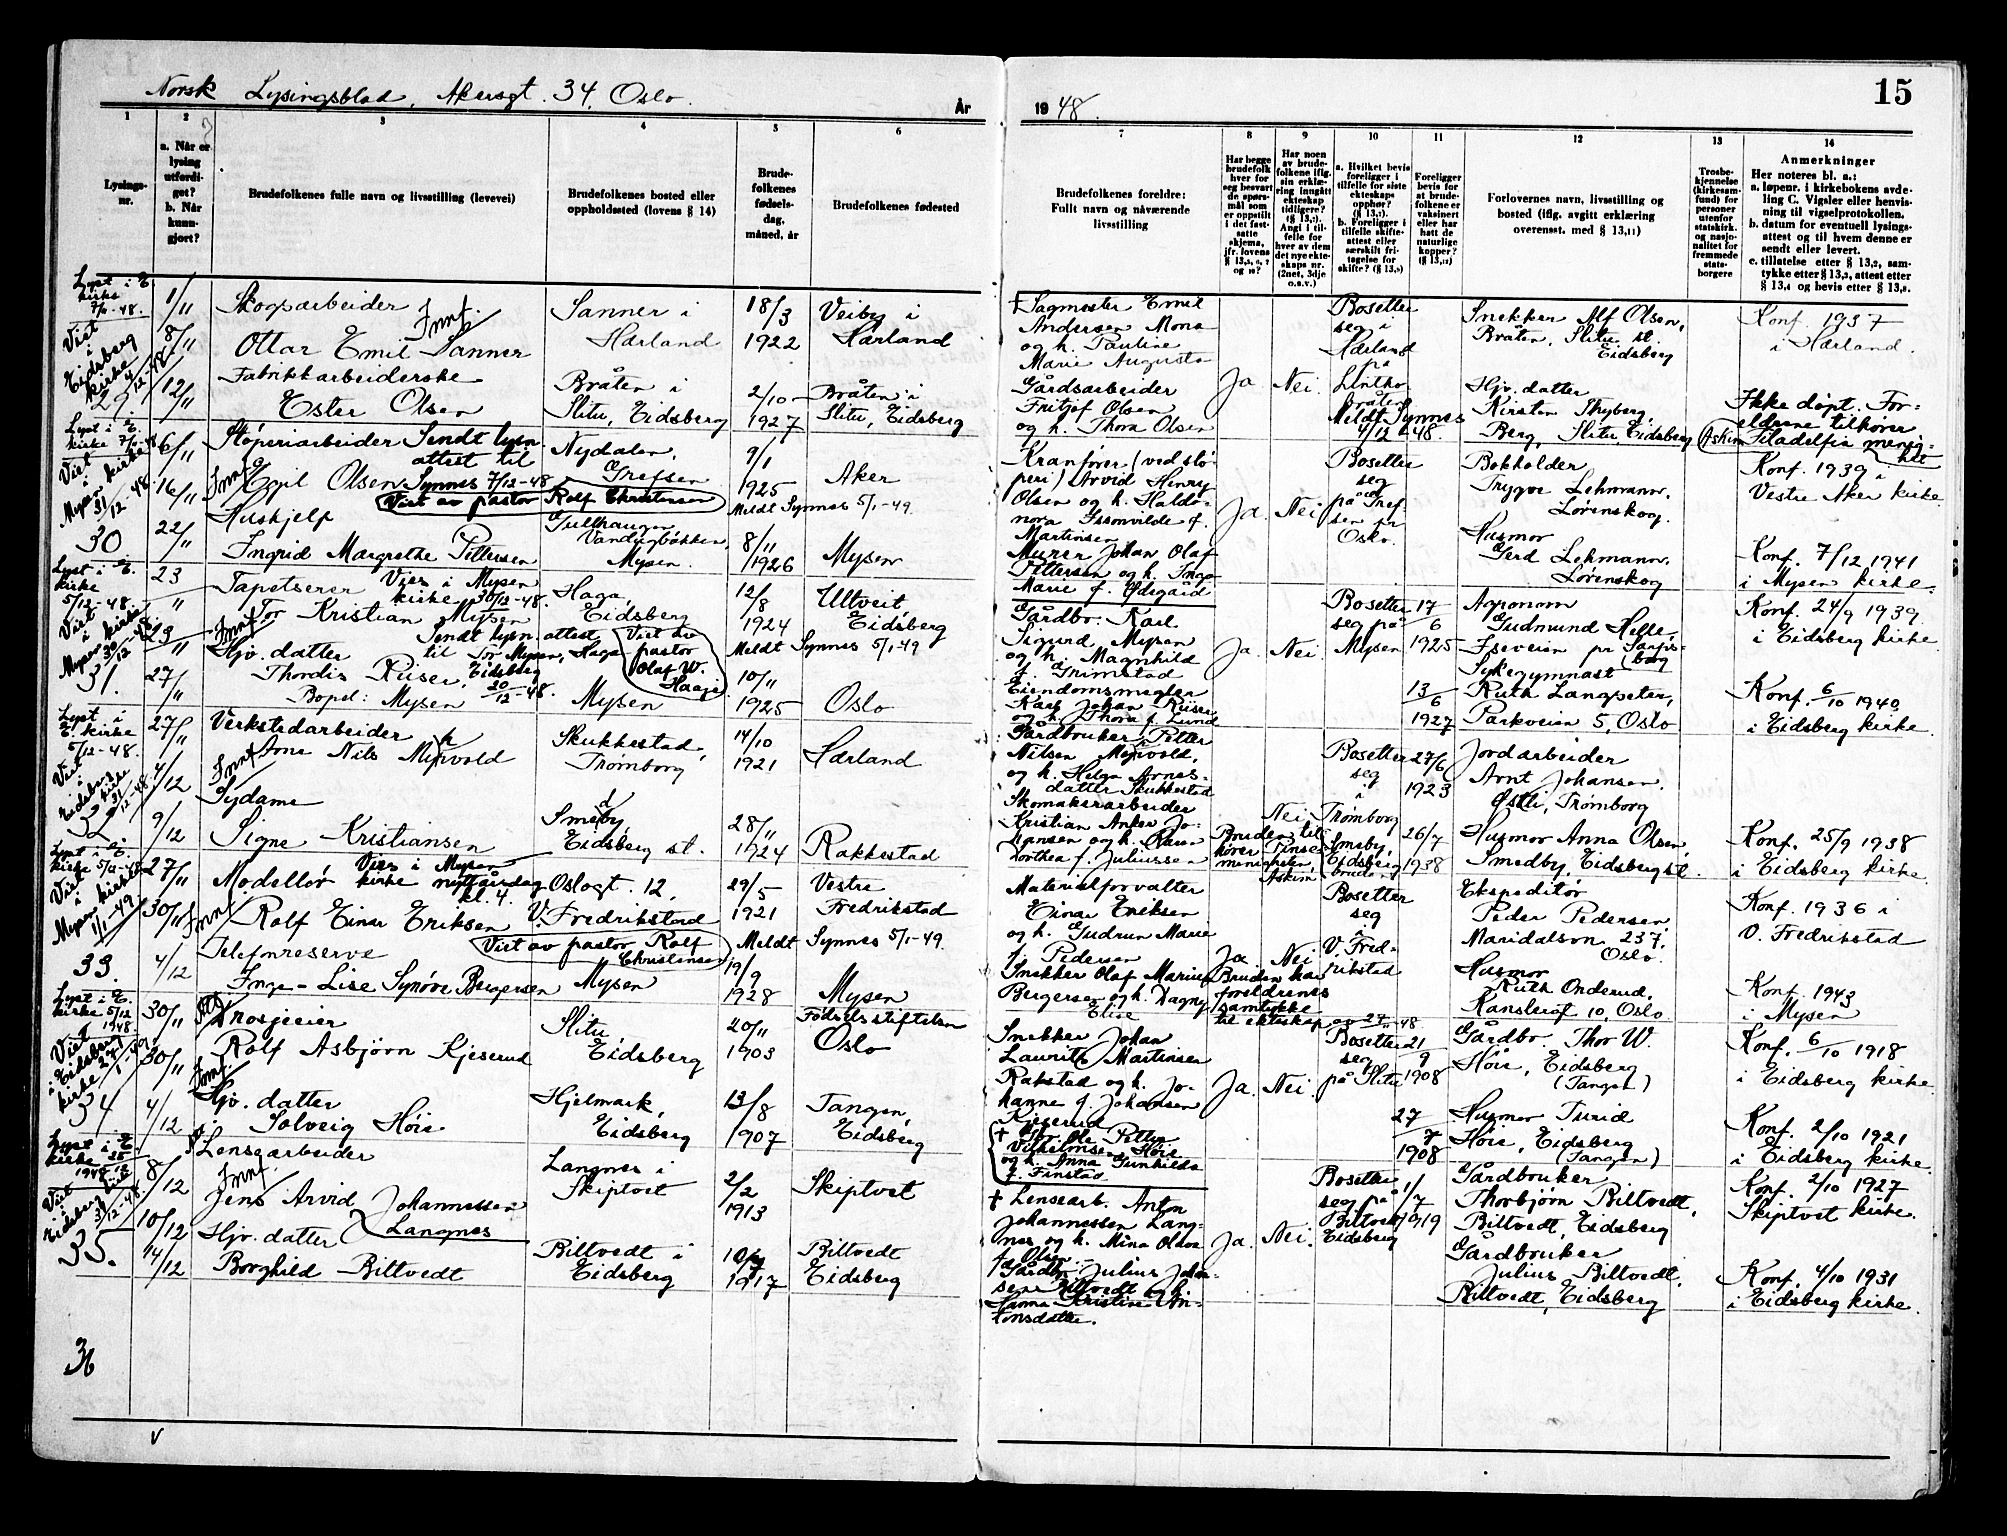 Norsk Lysingsblad, Akersgt. 34, Oslo.
År
1948.
15
1
2
3
4
5
6
7
8
9
10
11
12
13
14
Lysings-
nr.
a. Når er
lysing
utferdi-
get?
b. Når
kunn-
gjort?
Brudefolkenes fulle navn og livsstilling (levevei)
Brudefolkenes bosted eller
oppholdssted (lovens § 14)
Brude-
folkenes
fødsels-
dag,
måned, år
Brudefolkenes fødested
Brudefolkenes foreldre:
Fullt navn og nåværende
livsstilling
Har begge
brudefolk
hver for
seg besvart
de spørs-
mål som
er oppstilt
i det fast-
satte
skjema,
jfr. lovens
Har noen
av brude-
folkene iflg.
sin erklæ-
ring inngått
ekteskap
tidligere?
(§ 13,2).
Angi i til-
felle for
hver av dem
det nye ekte-
skaps nr.
(2net, 3dje
o.s.v.)
a. Hvilket bevis
foreligger i
tilfelle for siste
ekteskaps
opphør?
b. Foreligger i
tilfelle skifte-
attest eller
særskilt fri-
tagelse for
skifte? (§ 13,3)
Foreligger
bevis for
at brude-
folkene er
vaksinert
eller har
hatt de
naturlige
kopper?
Forlovernes navn, livsstilling og
bosted (iflg. avgitt erklæring
overensst. med § 13,11)
Trosbe-
kjennelse
(kirkesam-
fund) for
personer
utenfor
statskirk.
og nasjo-
nalitet for
fremmede
stats-
borgere
Anmerkninger
Her noteres bl. a.:
a. løpenr. i kirkebokens avde-
ling C. Vigsler eller henvis-
ning til vigselprotokollen.
b. datum for eventuell lysings-
attest og til hvem denne er
sendt eller levert.
c. tillatelse etter § 13,2, sam-
tykke etter § 13,3, attest etter
§ 13,4 og bevis etter § 13,8.
Lyst i E.
kirke
7/11-48.
Viet
i
Eidsberg
kirke
4/12-48
29
1/11
8/11
12/11
Skogsarbeider
Innf.
Ottar Emil Sanner
Fabrikkarbeiderske
Ester Olsen
Sanner i
Hærland
Bråten i
Slitu, Eidsberg
18/3
1922
2/10
1927
Veiby i
Hærland
Bråten i
Slitu, Eidsberg
† Sagmester Emil
Andersen Mona
og h. Pauline
Marie Augusta
Gårdsarbeider
Fritjof Olsen
og h. Thora Olsen
Ja
Nei
Bosetter
seg i
Hærland
på
Bråten
Meldt Synnes
4/12-48.
Snekker Alf Olsen,
Bråten, Slitu st.
Eidsberg
Hjv. datter
Kirsten Thyberg,
Berg, Slitu Eidsberg
Askim
Konf. 1937
i Hærland.
Ikke døpt. For-
eldrene tilhører
Filadelfia menig-
het
Lyst i E.
kirke 7/11-48
Viet
i
Mysen kirke
31/12-48
30
6/11
16/11
22/11
Støperiarbeider Sendt lysn.
attest til
Innf.
Egil Olsen Synnes 7/12-48
Viet av pastor Rolf Christensen
Hushjelp
Ingrid Margrethe Pettersen
Nydalen,
Grefsen
Gullhaugen
Vandugbakken,
Mysen.
9/1
1925
Meldt Synnes 5/1-49.
8/11
1926
Aker
Mysen
Kranfører (ved stø-
peri) Arvid Henry
Olsen og h. Haldo-
nora Gsonvilde f.
Martinsen
Murer Johan Olaf
Pettersen og h. Inga
Marie f. Ødegård
Ja.
Nei
Bosetter
seg
på Gref-
sen pr
Oslo.
Bokholder
Trygve Lehmann,
Lørenskog.
Husmor
Gerd Lehmann,
Lørenskog
Konf. 1939 i
Vestre Aker kirke
Konf. 7/12 1941
i Mysen kirke.
Lyst i E.
kirke
5/12-48.
Viet
i
Mysen kirke
30/12-48
31.
23/11
23/11
27/11
Tapetserer Vies i Mysen
kirke 30/12-48.
Tor Kristian Mysen
Innf.
Sendt lysn. attest
Hjv. datter til Tor Mysen, Haga
Thordis Riiser, Eidsberg
20/12-48.
Bopel: Mysen
Viet av
pastor
Olaf W.
Haaje
Haga,
Eidsberg
Mysen
12/8
1924
Meldt Synnes 5/1-49
10/11
1925
Ultveit,
Eidsberg
Oslo
Gårdbr. Karl
Sigurd Mysen
og h. Magnhild
f. Grimstad
Eiendomsmegler
Karl Johan Riiser
og h. Thora f. Lund
Ja.
Nei
Bosetter
seg på
Mysen
17/6
1925
13/6
1927
Agronom
Gudmund Helle,
Isevein pr Sarps-
borg
Sykegymnast
Ruth Langseter,
Parkveien 5, Oslo
Konf. 24/9 1939.
i Eidsberg kirke.
Konf. 6/10 1940
i Eidsberg kirke.
Lyst i
E. kirke
5/12-48.
Viet
i
Eidsberg
kirke
31/12-48
32
27/11
4/12
9/12
Verkstedarbeider
Arne Nils Myrvold
Innf.
Sydame
Signe Kristiansen
Skukkestad,
Trømborg
Smedby
Eidsberg st.
14/10
1921
28/11
1924
Hærland
Rakkestad
Gårdbruker Petter
Nilsen Myrvold,
og h. Helga Arnes-
datter Skukkestad
Skomakerarbeider
Kristian Anker Jo-
hansen og h. Karen
Dorthea f. Juliussen
Bruden til-
hører Pinse-
menigheten,
Askim
Nei
Bosetter
seg
i
Trømborg
Smedby,
Eidsberg
bruden
27/6
1923
26/7
1938
Jordarbeider
Arnt Johansen,
Østli, Trømborg
Husmor Anna Olsen,
Smedby, Eidsberg st.
Konf. 25/9 1938
i Eidsberg kirke.
Lyst i E.
kirke 5/12-48
Viet
i
Mysen kirke
1/1-49
33.
27/11
30/11
4/12
Modellør Vies i Mysen
kirke nyttårsdag
kl. 4.
Innf.
Rolf Einar Eriksen
Telefonreserve
Viet av pastor Rolf
Christensen
Inga-Lise Synøve Bergersen
Oslogt. 12,
V. Fredrikstad
Mysen
29/5
1921
Meldt Synnes 5/1-49.
19/9
1928
Vestre
Fredrikstad
Mysen
Materialforvalter
Einar Eriksen
og h. Gudrun Marie
f. Pedersen
Snekker Olaf Marius
Bergersen og h. Dagny
Elise
Ja
Nei
Bruden har
foreldrenes
samtykke
til ekteskap av 27/11-48
Bosetter
seg
i
V. Fred-
rikstad
Ekspeditør
Peder Pedersen,
Maridalsvn 237,
Oslo.
Husmor
Ruth Onderud,
Kanslergt 10, Oslo
Konf. 1936 i
V. Fredrikstad
Konf. 1943
i Mysen
Lyst i E.
kirke 5/12
1948.
Viet
i Eidsberg
kirke 2/1-49
34
30/11
30/11
4/12
Drosjeeier
Rolf Asbjørn Kjeserud
Innf.
Hjv. datter
Solveig Høie
Slitu
Eidsberg
Hjelmark,
Eidsberg
20/11
1903
13/8
1907
Fødselsstiftelsen
Oslo
Tangen,
Eidsberg
Snekker Johan
Laurits Martinsen
Rakstad og h. Jo-
hanne f. Johansen
Kjeserud
† Gbr. Ole Petter
Vilhelmsen Høie
og h. Anna Gunhilda
f. Finstad
Ja
Nei
Bosetter
seg
på Slitu
21/9
1908
27/7
1908
Gårdbr. Thor W.
Høie, Eidsberg
(Tangen)
Husmor Turid
Høie, Eidsberg
(Tangen)
Konf. 6/10 1918
i Eidsberg kirke
Konf. 2/10 1921
i Eidsberg kirke
Lyst i E.
kirke
1948
Viet
i
Eidsberg kirke
31/12-48.
35.
8/12
10/12
14/12
Lensearbeider
Innf.
Jens Arvid Johannessen
Langnes
Hjv. datter
Borghild Biltvedt
Langnes i
Skiptvet
Biltvedt i
Eidsberg
2/2
1913
1917
Skiptvet
Biltvedt
Eidsberg
† Lensearb. Anton
Johannessen Lang-
nes og h. Mina Olava
f. Olsen
Gårdbr. Julius Johan-
sen Biltvedt og h.
Hanna Kristine An-
tonsdatter.
Ja.
Nei.
Bosetter
seg på
Biltvedt
Eidsberg
1/7
1919
Gårdbruker
Thorbjørn Biltvedt,
Biltvedt, Eidsberg
Gårdbruker
Julius Biltvedt,
Biltvedt, Eidsberg
Konf. 2/10 1927
Skiptvet kirke.
Konf. 4/10 1931
i Eidsberg kirke.
36
v